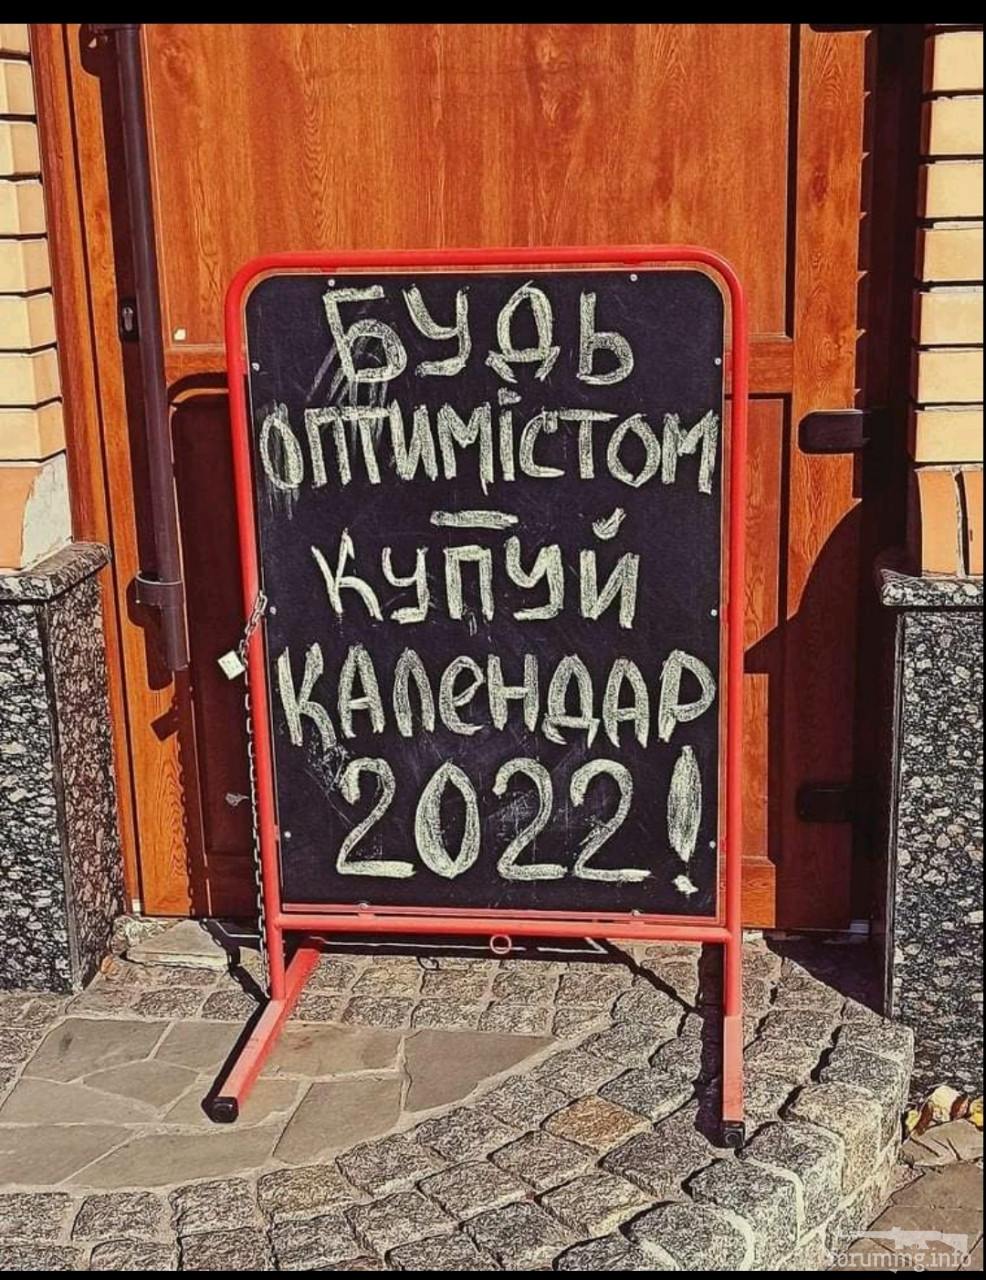 БУДЬ
ОПТИМІСТОМ
–
КУПУЙ
КАЛЕНДАР
2022!
forummg.info